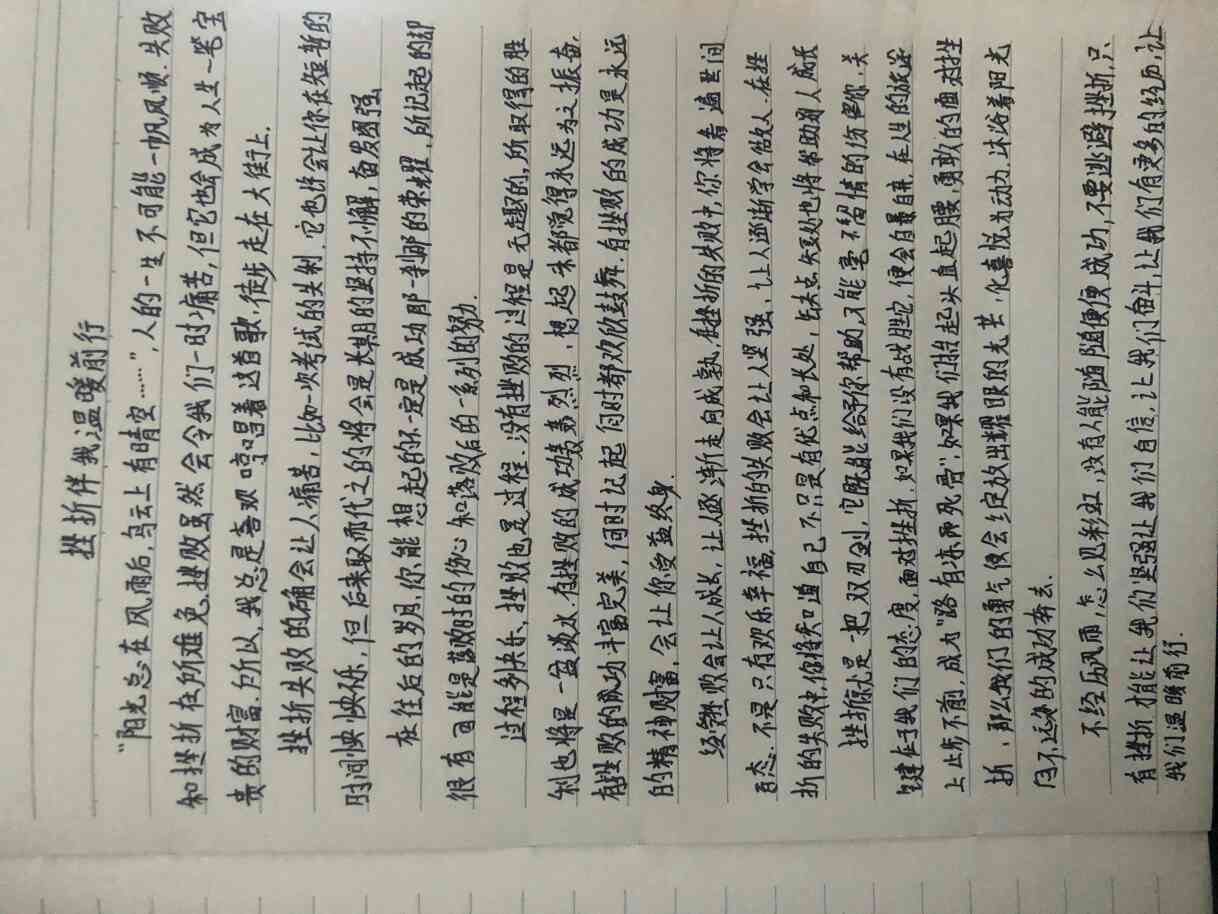 挫折伴我温暖前行
“阳光总在风雨后,乌云上有晴空……”,人的一生不可能一帆风顺.失败
和挫折在所难免.挫败虽然会令我们一时痛苦,但它也会成为人生一笔宝
贵的财富.所以,我总是喜欢哼唱着这首歌,徒步走在大街上.
挫折失败的确会让人痛苦,比如一次考试的失利.它也许会让你在短暂的
时间快乐,但后来取而代之的将会是长期的坚持不懈,奋发图强
在往后的岁月,你能想起的不一定是成功那一刹那的荣耀,所记起的却
很有可能是落败时的伤心和落败后的一系列的努力.
过程多快乐、挫败也是过程.没有挫败的过程是无趣的,所取得的胜
利也将是一盆淡水.有挫败的成功轰轰烈烈,想起来都觉得永远为之振奋,
有挫败的成功丰富完美,何时记起何时都欢欣鼓舞.有挫败的成功是永远
的精神财富,会让你受益终身.
经受挫败会让人成长,让人逐渐走向成熟,在挫折的失败中,你将看遍世间
百态.不是只有欢乐幸福,挫折的失败会让人坚强,让人逐渐学会做人.在挫
折的失败中,你将知道自己不只是有优点和长处,缺点短处也将帮助别人成长
挫折就是一把双刃剑,它既能给予你帮助,又能毫不留情的伤害你.关
键在于我们的态度.面对挫折,如果我们没有战胜它,便会自暴自弃.在人生的旅途
上止步不前,成为“路有冻死骨”,如果我们抬起头直起腰,勇敢的面对挫
折,那么我们的勇气便会绽放出耀眼的光芒,化喜悦为动力.沐浴着阳光
向不远处的成功奔去.
不经历风雨怎么见彩虹,没有人能随随便便成功,不要逃避挫折,只
有挫折才能让我们坚强让我们自信,让我们奋斗,让我们有更多的经历,让
我们温暖前行.